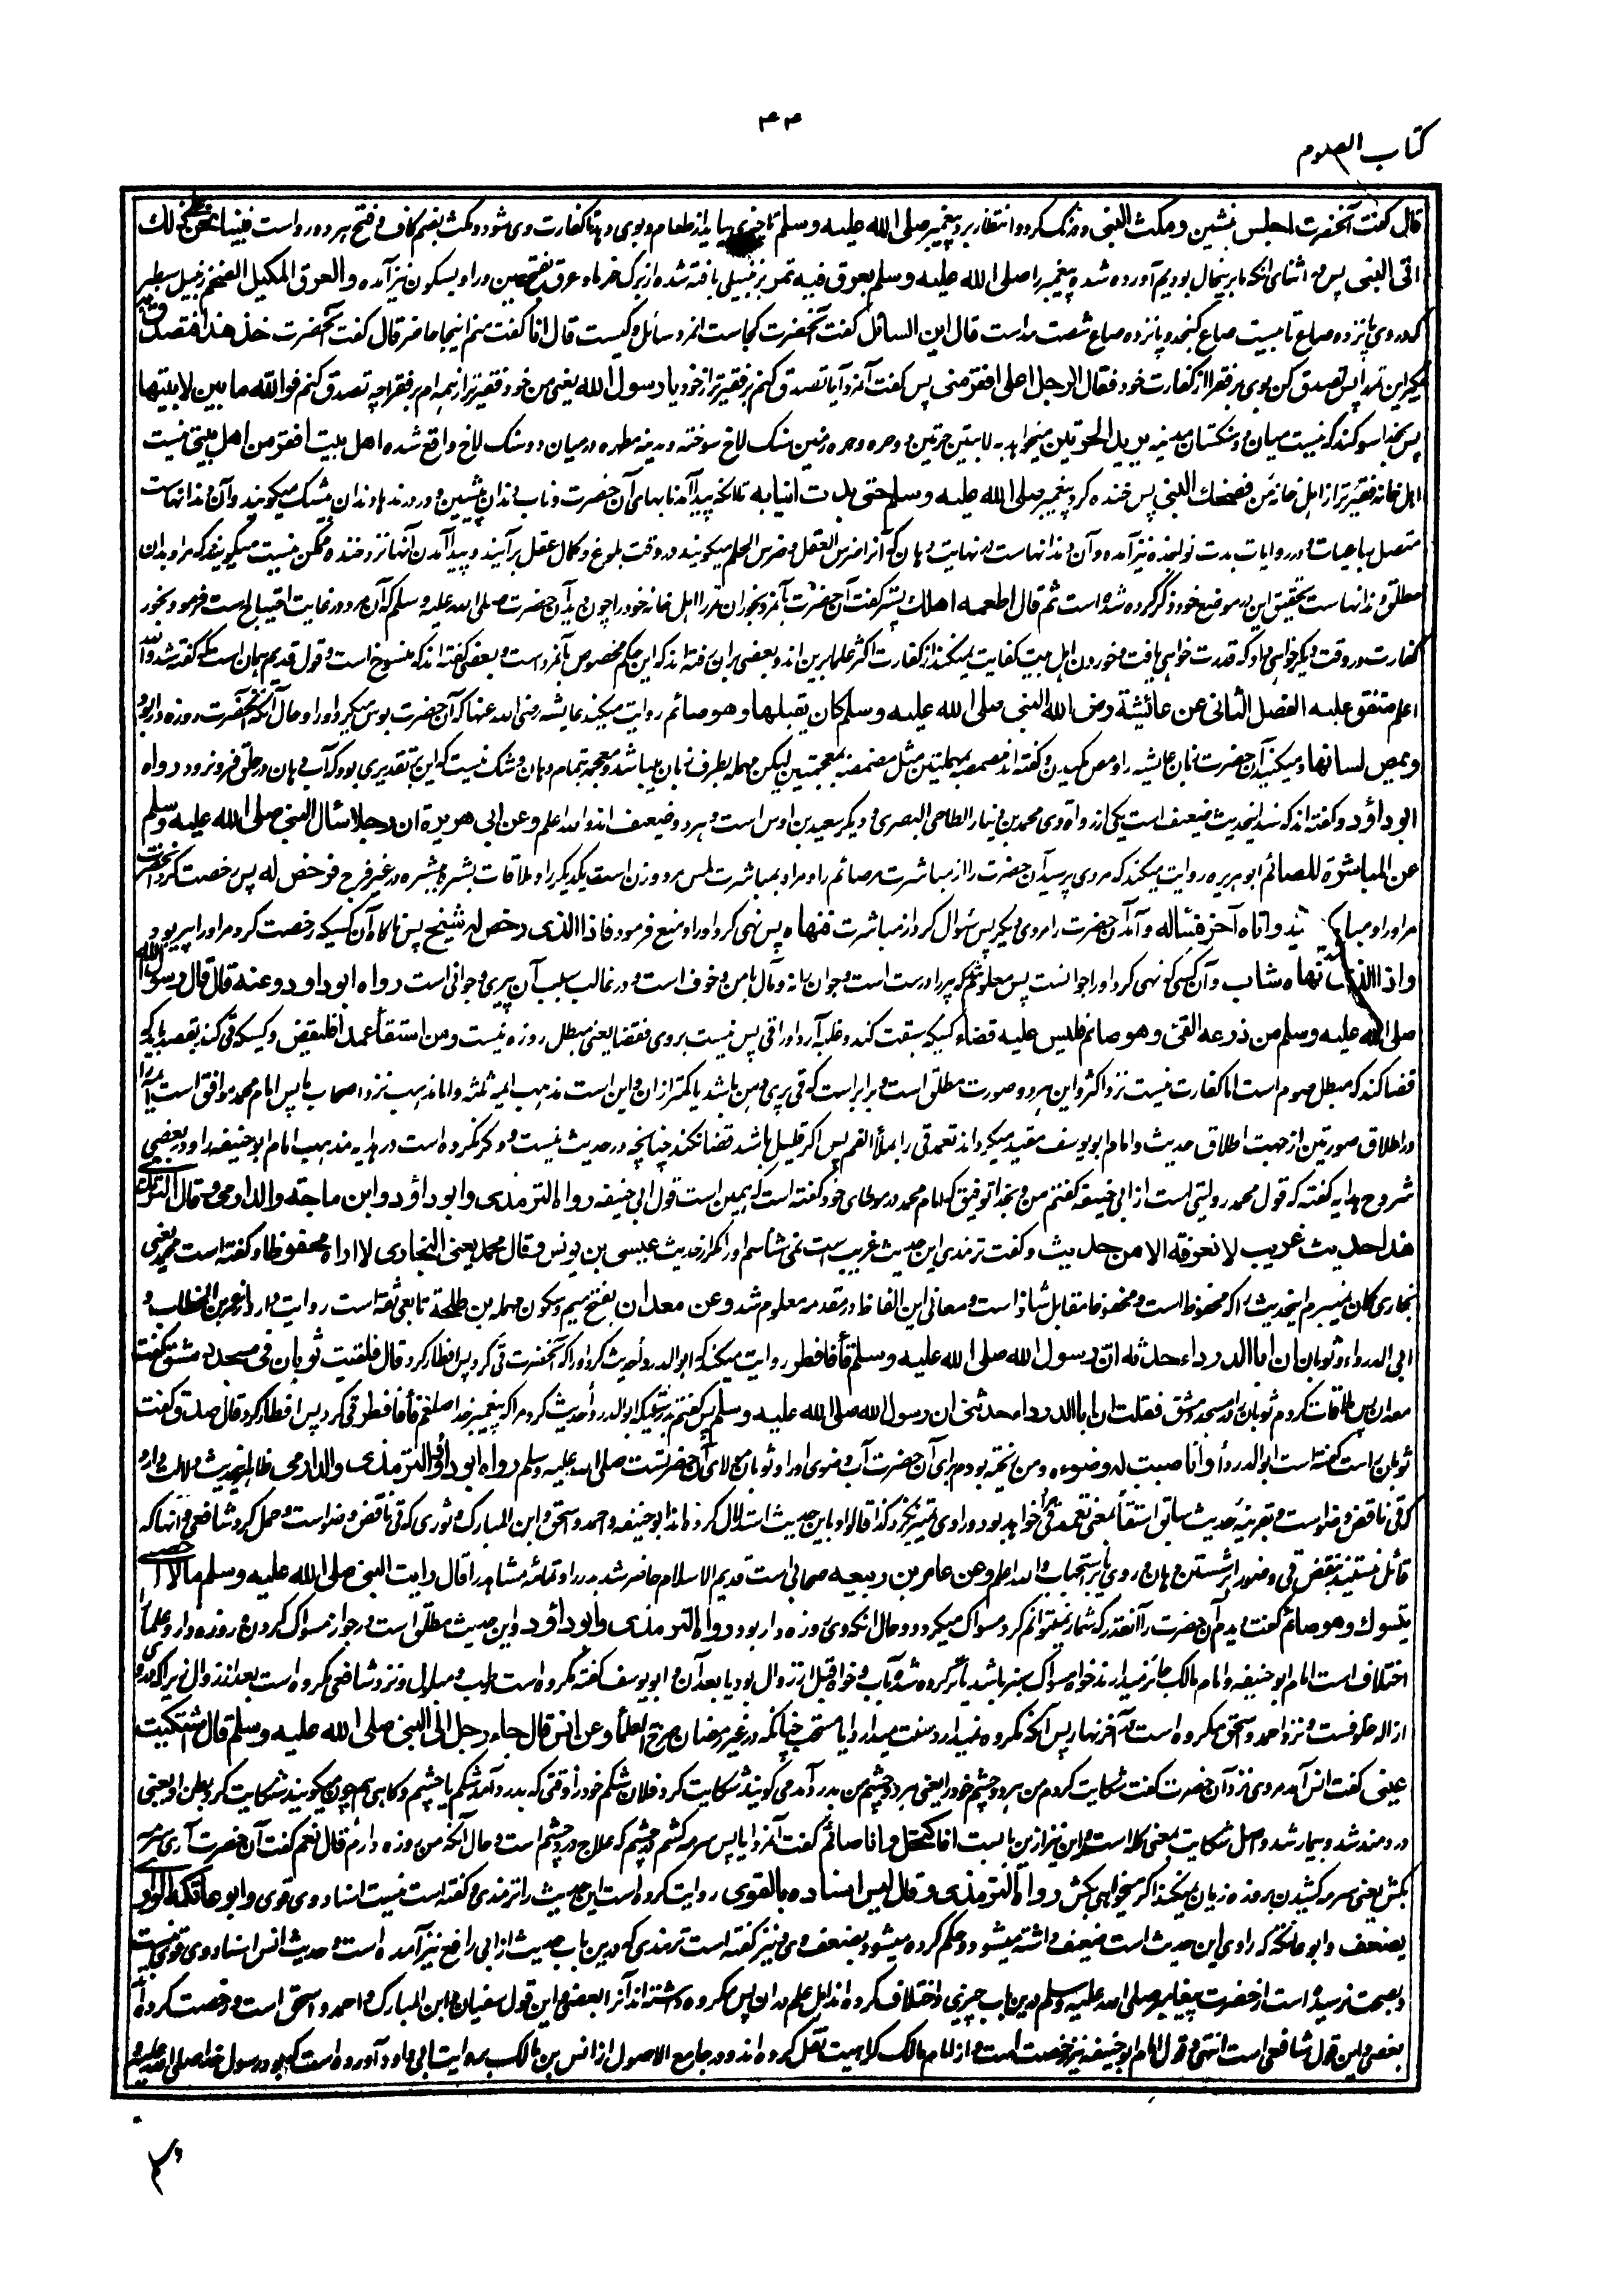 ۴۴
کتاب الصوم
قال گفت آنحضرت اجلس بنشین و مکث النبی و درنگ کرد و انتظار برد پیغمبر صلی الله علیه وسلم تا چیزی بیاید از طعام و بوی دهد تا کفارت وی شود و مکث بضم کاف و فتح هر دو رواست فبینا نحن علی ذلك
اتی النبی پس در اثنای آنکه ما برینحال بودیم آورده شد پیغمبر را صلی الله علیه وسلم بعرق فیه تمر بزنبیلی بافته شده از برگ خرما و عرق بفتح عین و را و بسکون نیز آمده و العرق المکتل الضخم زنبیل سطبر
که در وی پانزده صاع تا بیست صاع گنجد و پانزده صاع شصت مد است قال این السائل گفت آنحضرت کجاست آنمرد سائل و کیست قال انا گفت منم اینجا حاضر قال گفت آنحضرت خذ هذا فتصدق به
بگیر این تمر را پس تصدق کن بوی بر فقرا از کفارت خود فقال الرجل اعلی افقر منی پس گفت آنمرد آیا تصدق کنم بر فقیرتر از خود یا رسول الله یعنی من خود فقیرتر از همه ام بر فقرا چه تصدق کنم فوالله ما بین لابتیها
پس بخدا سوگند که نیست میان دو سنگستان مدینه یرید الحرتین میخواهد به لابتین حرتین و حره زمین سنگ لاخ سوخته و مدینه مطهره در میان دو سنگ لاخ واقع شده اهل بیت افقر من اهل بیتی نیست
اهل خانه فقیرتر از اهل خانه من فضحك النبی پس خنده کرد پیغمبر صلی الله علیه وسلم حتی بدت انیابه تا آنکه پیدا آمد نابهای آن حضرت
متصل برباعیات و در روایات بدت نواجذه نیز آمده و آن دندانهاست در نهایت دهان که آنرا ضرس العقل و ضرس الحلم میگویند در وقت بلوغ و کمال عقل برآیند و پیدا آمدن آنها نزد خنده ممکن نیست میگویند که مراد بدان
مطلق دندانهاست و تحقیق این در موضع خود ذکر کرده شده است ثم قال اطعمه اهلك پستر گفت آن حضرت بآنمرد بخوران تمر را اهل خانه خود را چون دید آن حضرت صلی الله علیه وسلم که آن مرد در نهایت احتیاج است فرمود بخور
کفارت در وقت دیگر خواهی داد که قدرت خواهی یافت و خوردن اهل بیت کفایت نمیکند از کفارت اکثر علما برین اند و بعضی بران رفته اند که این حکم مخصوص بآنمرد است و بعضی گفته اند که منسوخ است و قول قدیم همان است که گفته شد والله
اعلم متفق علیه الفصل الثانی عن عائشة رضی الله النبی صلی الله علیه وسلم کان یقبلها وهو صائم روایت میکند عایشه رضی الله عنها که آن حضرت بوس میکرد او را و حال آنکه آنحضرت روزه دار بود
ویمص لسانها و میمکید آن حضرت زبان عایشه را و مص مکیدن و گفته اند مصمصه بمهملتین مثل مضمضه بمعجمتین لیکن مهمله بطرف زبان میباشد و معجمه بتمام دهان و شک نیست که این بر تقدیری بود که آب دهان در حلق فرو نرود رواه
ابو داؤد و گفته اند که سند اینحدیث ضعیف است یکی از رواة وی محمد بن دینار الطاحی البصری و دیگر سعید بن اوس است و هر دو ضعیف اند والله اعلم وعن ابی هریرة ان رجلا سأل النبی صلی الله علیه وسلم
عن المباشرة للصائم ابو هریره روایت میکند که مردی پرسید آن حضرت را از مباشرت مر صائم را و مراد بمباشرت لمس مرد و زن است یکدیگر را و ملاقات بشره ببشره در غیر فرج فرخص له پس رخصت کرد آنحضرت
مر او را در مباشرت واتاه آخر فسأله و آمد آن حضرت را مردی دیگر پس سؤال کرد از مباشرت فنهاه پس نهی کرد او را و منع فرمود فاذا الذی رخص له شیخ پس ناگاه آن کسیکه رخصت کرد مر او را پیر بود
واذا الذی نهاه شاب و آن کسی که نهی کرد او را جوانست پس معلوم شد که پیر را درست است و جوان را نه و مآل بامن و خوف است و در غالب سبب آن پیری و جوانی است رواه ابو داود وعنه قال قال رسول الله
صلی الله علیه وسلم من ذرعه القئ وهو صائم فلیس علیه قضاء کسیکه سبقت کند و غلبه آرد او را قی پس نیست بروی قضا یعنی مبطل روزه نیست ومن استقاء عمدا فلیقض و کسیکه قی کند بقصد باید که
قضا کند که مبطل صوم است اما کفارت نیست نزد اکثر و این هر دو صورت مطلق است و برابر است که قی پری دهن باشد یا کمتر از آن و این است مذهب ائمه ثلثه و اما مذهب نزد اصحاب ما پس امام محمد موافق است
در اطلاق صورتین از جهت اطلاق حدیث و امام ابو یوسف مقید میگرداند تعمد قی را بملأ الفم پس اگر قلیل باشد قضا نکند چنانچه در حدیث نیست و ذکر نکرده است در هدایه مذهب امام ابو حنیفه را و در بعضی
شروح هدایه گفته که قول محمد روایتی است از ابی حنیفه گفتم من و بخدا توفیق که امام محمد در موطای خود گفته است که همین است قول ابی حنیفه رواه الترمذی وابو داؤد وابن ماجة والدارمی وقال الترمذی
هذا حدیث غریب لا نعرفه الا من حدیث و گفت ترمذی این حدیث غریب است نمی شناسم او را مگر از حدیث عیسی بن یونس وقال محمد یعنی البخاری لا اراه محفوظا و گفته است محمد یعنی
بخاری گمان نمیبرم اینحدیث را که محفوظ است و محفوظ مقابل شاذ است و معانی این الفاظ در مقدمه معلوم شد وعن معدان بفتح میم و سکون مهمله بن طلحة تابعی ثقه است روایت دارد از عمر بن الخطاب و
ابی الدرداء و ثوبان ان ابا الدرداء حدثه ان رسول الله صلی الله علیه وسلم قاء فافطر روایت میکند که ابو الدرداء حدیث کرد او را که آنحضرت قی کرد پس افطار کرد قال فلقیت ثوبان فی مسجد دمشق گفت
معدان پس ملاقات کردم ثوبان را در مسجد دمشق فقلت ان ابا الدرداء حدثنی ان رسول الله صلی الله علیه وسلم پس گفتم بدرستیکه ابو الدرداء حدیث کرد مرا که پیغمبر خدا صلعم قاء فافطر قی کرد پس افطار کرد قال صدق گفت
ثوبان راست گفته است ابو الدرداء وانا صببت له وضوءه و من ریخته بودم برای آن حضرت آب وضوی او را و ثوبان مولای آن حضرتست صلی الله علیه وسلم رواه ابو داؤد والترمذی والدارمی ظاهر اینحدیث دلالت دارد
که قی ناقض وضو است و بقرینه حدیث سابق استقاء بمعنی تعمد قی خواهد بود و راوی تمییز نکرد کذا قالوا و باین حدیث استدلال کرده اند ابو حنیفه و احمد و اسحق و ابن المبارک و ثوری که قی ناقض وضو است و حمل کرد شافعی و آنها که
قائل نیستند بنقض قی وضو را بر شستن دهان و روی یا بر استحباب والله اعلم وعن عامر بن ربیعه صحابی است قدیم الاسلام حاضر شد بدر را و تمامه مشاهد را قال رایت النبی صلی الله علیه وسلم مالا احصی
یتسوك وهو صائم گفت دیدم آن حضرت را آنقدر که شمار نمیتوانم کرد مسواک میکرد و حال آنکه وی روزه دار بود رواه الترمذی وابو داؤد و این حدیث مطلق است در جواز مسواک کردن در روزه دار و علما را
اختلاف است امام ابو حنیفه و امام مالک جائز میدارند خواه مسواک سبز باشد یا تر کرده شده بآب و خواه قبل از زوال بود یا بعد آن و ابو یوسف گفته مکروه است رطب و مبلول و نزد شافعی مکروه است بعد از زوال زیرا که در
ازاله خلوفست و نزد احمد و اسحق مکروه است در آخر نهار پس آنکه مکروه نمیدارد سنت میدارد یا مستحب چنانکه در غیر رمضان صرح به العلماء وعن انس قال جاء رجل الی النبی صلی الله علیه وسلم قال اشتکیت
عینی گفت انس آمد مردی نزد آن حضرت گفت شکایت کردم من هر دو چشم خود را یعنی هر دو چشم من بدرد آمد می گویند شکایت کرد فلان شکم خود را وقتی که بدرد آمد شکم یا چشم و گاهی هم چنین میگویند شکایت کرد بطن او یعنی
دردمند شد و بیمار شد و اصل شکایت بمعنی گله است و این نیز ازین باب است افاکتحل وانا صائم گفت آنمرد آیا پس سرمه کشم در چشم که علاج درد چشم است و حال آنکه من روزه دارم قال نعم گفت آن حضرت آری سرمه
بکش یعنی سرمه کشیدن بروزه زیان نمیکند اگر میخواهی بکش رواه الترمذی وقال لیس اسناده بالقوی روایت کرده است این حدیث را ترمذی و گفته است نیست اسناد وی قوی وابو عاتکة الراوی
یضعف و ابو عاتکه که راوی این حدیث است ضعیف داشته میشود و حکم کرده میشود بضعف وی و نیز گفته است ترمذی که درین باب حدیث از ابی رافع نیز آمده است و حدیث انس اسناد وی قوی نیست
و بصحت نرسیده است از حضرت پیغامبر صلی الله علیه وسلم درین باب چیزی و اختلاف کرده اند اهل علم در ان پس مکروه داشته اند آنرا بعضی و این قول سفیان و ابن المبارک و احمد و اسحق است و رخصت کرده اند
بعضی و این قول شافعی است انتهی و قول امام ابو حنیفه نیز رخصت است و از امام مالک کراهیت نقل کرده اند و در جامع الاصول از انس بن مالک بروایت ابی داود آورده است که بود رسول خدا صلی الله علیه و